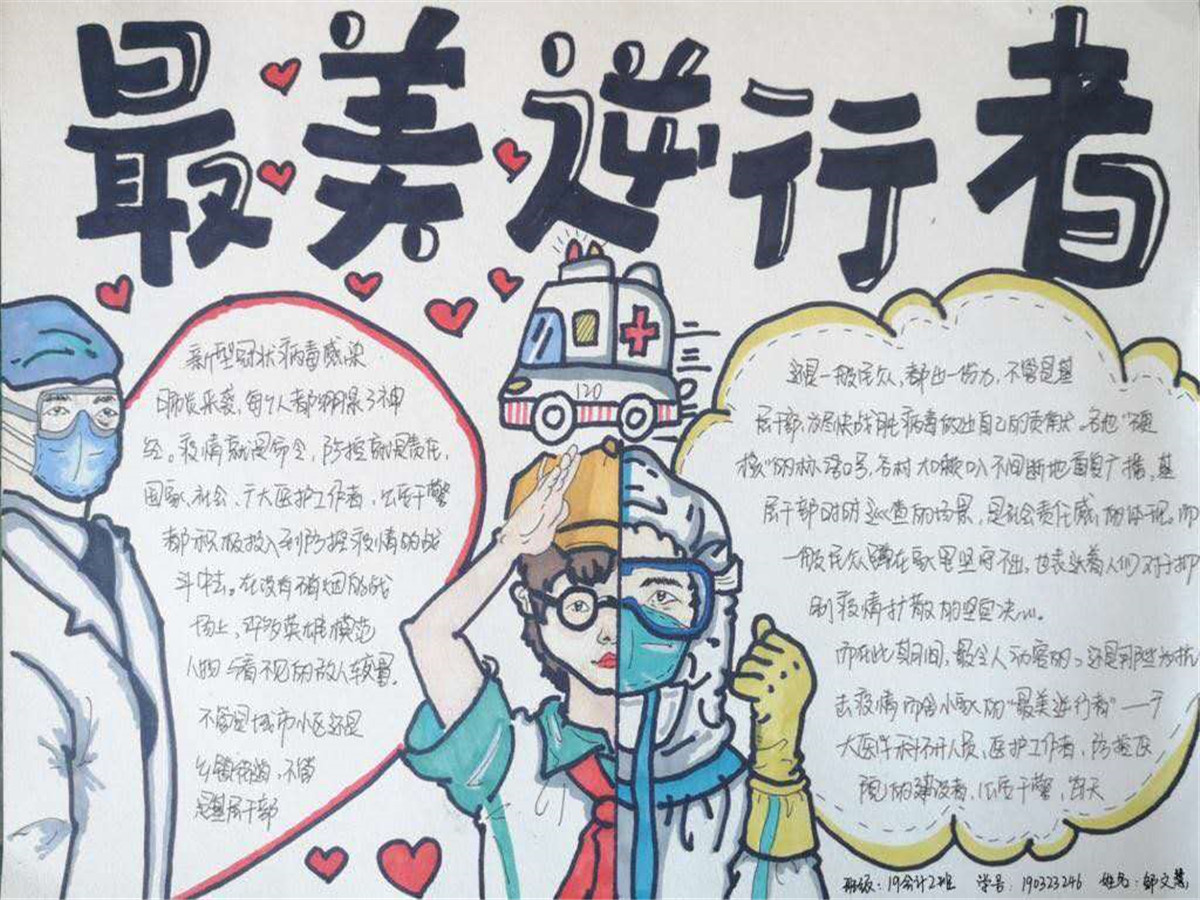 最美逆行者
新型冠状病毒感染
肺炎来袭，每个人都绷紧了神
经。疫情就是命令，防控就是责任，
国家、社会、广大医护工作者，公安干警
都积极投入到防控疫情的战
斗中去。在没有硝烟的战
场上，许多英雄模范
人物与看不见的敌人较量。
不管是城市小区还是
乡镇街道，不管
是基层干部
120
还是一般民众，都出一份力，不管是基
层干部，为尽快战胜病毒做出自己的贡献。各地“硬
核”的标语口号，各村大喇叭不间断地重复广播，基
层干部时时巡查的场景，是社会责任感的体现。而
一般民众蹲在家里坚守不出，也表达着人们对于抑
制疫情扩散的坚定决心。
而在此期间，最令人动容的，还是那些为抗
击疫情而舍小家的“最美逆行者”——广
大医学科研人员，医护工作者，防控医
院的建设者，公安干警，当天
班级：19会计2班 学号：190323246 姓名：邹文慧